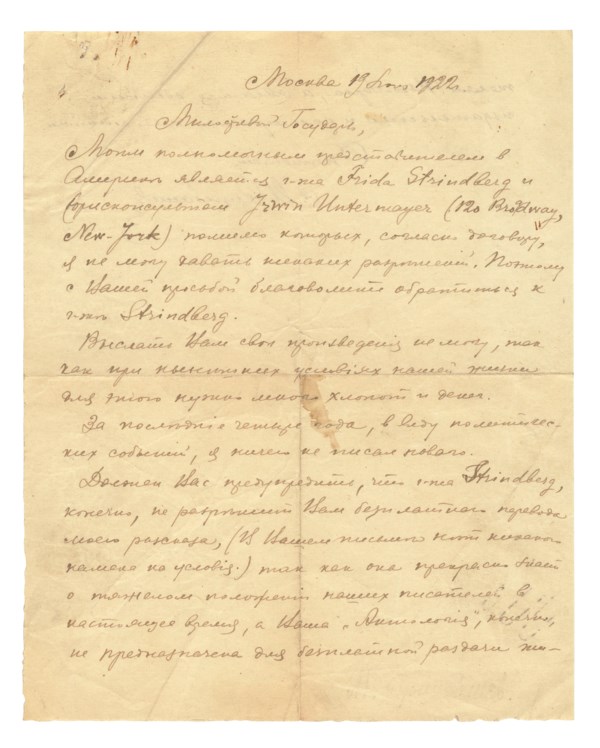 Москва 19 1922.
Милостивой Государь,
Моим полномочным представителем в
Америкѣ является г-жа Frida Strindberg и
Юрисконсультом Irwin Untermayer (120 Broadway,
New-York) помимо которых, согласно договору,
я не могу давать никаких разрѣшенiй. Поэтому
с Вашей просьбой благоволите обратиться к
г-жѣ Strindberg.
Выслать Вам свои произведенiя не могу, так
как при нынѣшних условiях нашей жизни
для этого нужно много хлопот и денег.
За послѣднiе четыре года, в виду политичес-
ких событiй, я ничего не писал новаго.
Должен Вас предупредить, что г-жа Strindberg,
конечно, не разрѣшит Вам безплатного перевода
моего разсказа, (в Вашем письмѣ нѣт никакого
намека на условiя.) так как она прекрасно знает
о тяжелом положенiи наших писателей в
настоящее время, а Ваша „Антологiя", конечно,
не предназначена для безплатной раздачи